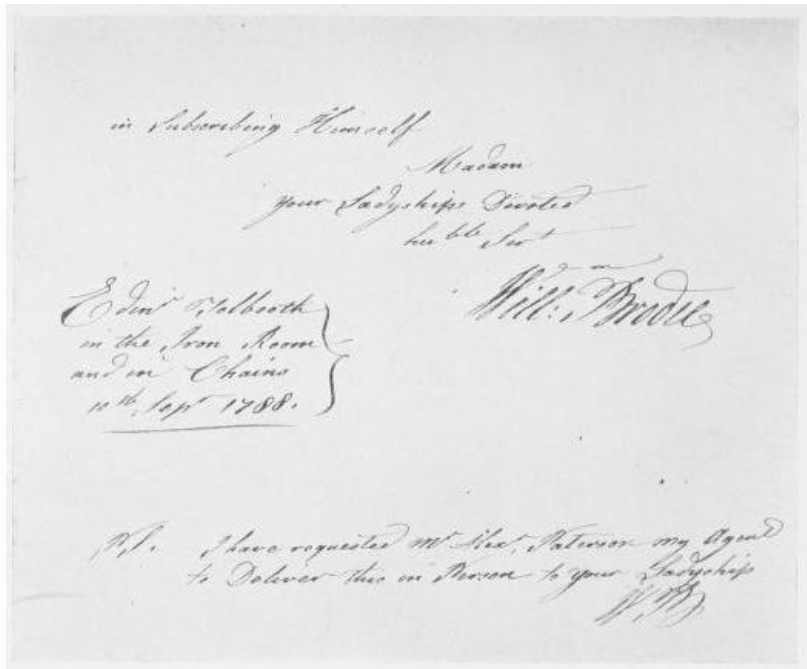 in Subscribing Himself
Madam
your Ladyships Devoted
huble Servt
Willm: Brodie
Edinr Tolbooth
in the Iron Room
and in Chains
10th Sepr 1788.
P.S. I have requested Mr Alexr. Paterson my Agent
to Deliver this in Person to your Ladyship
W. B.